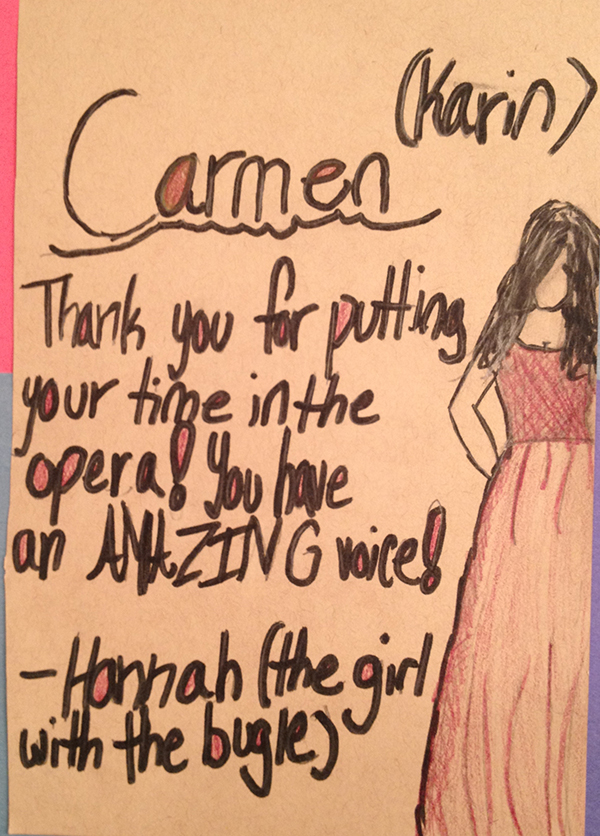 (Karin)
Carmen
Thank you for putting
your time in the
opera! You have
an AMAZING voice!
-Hannah (the girl
with the bugle)